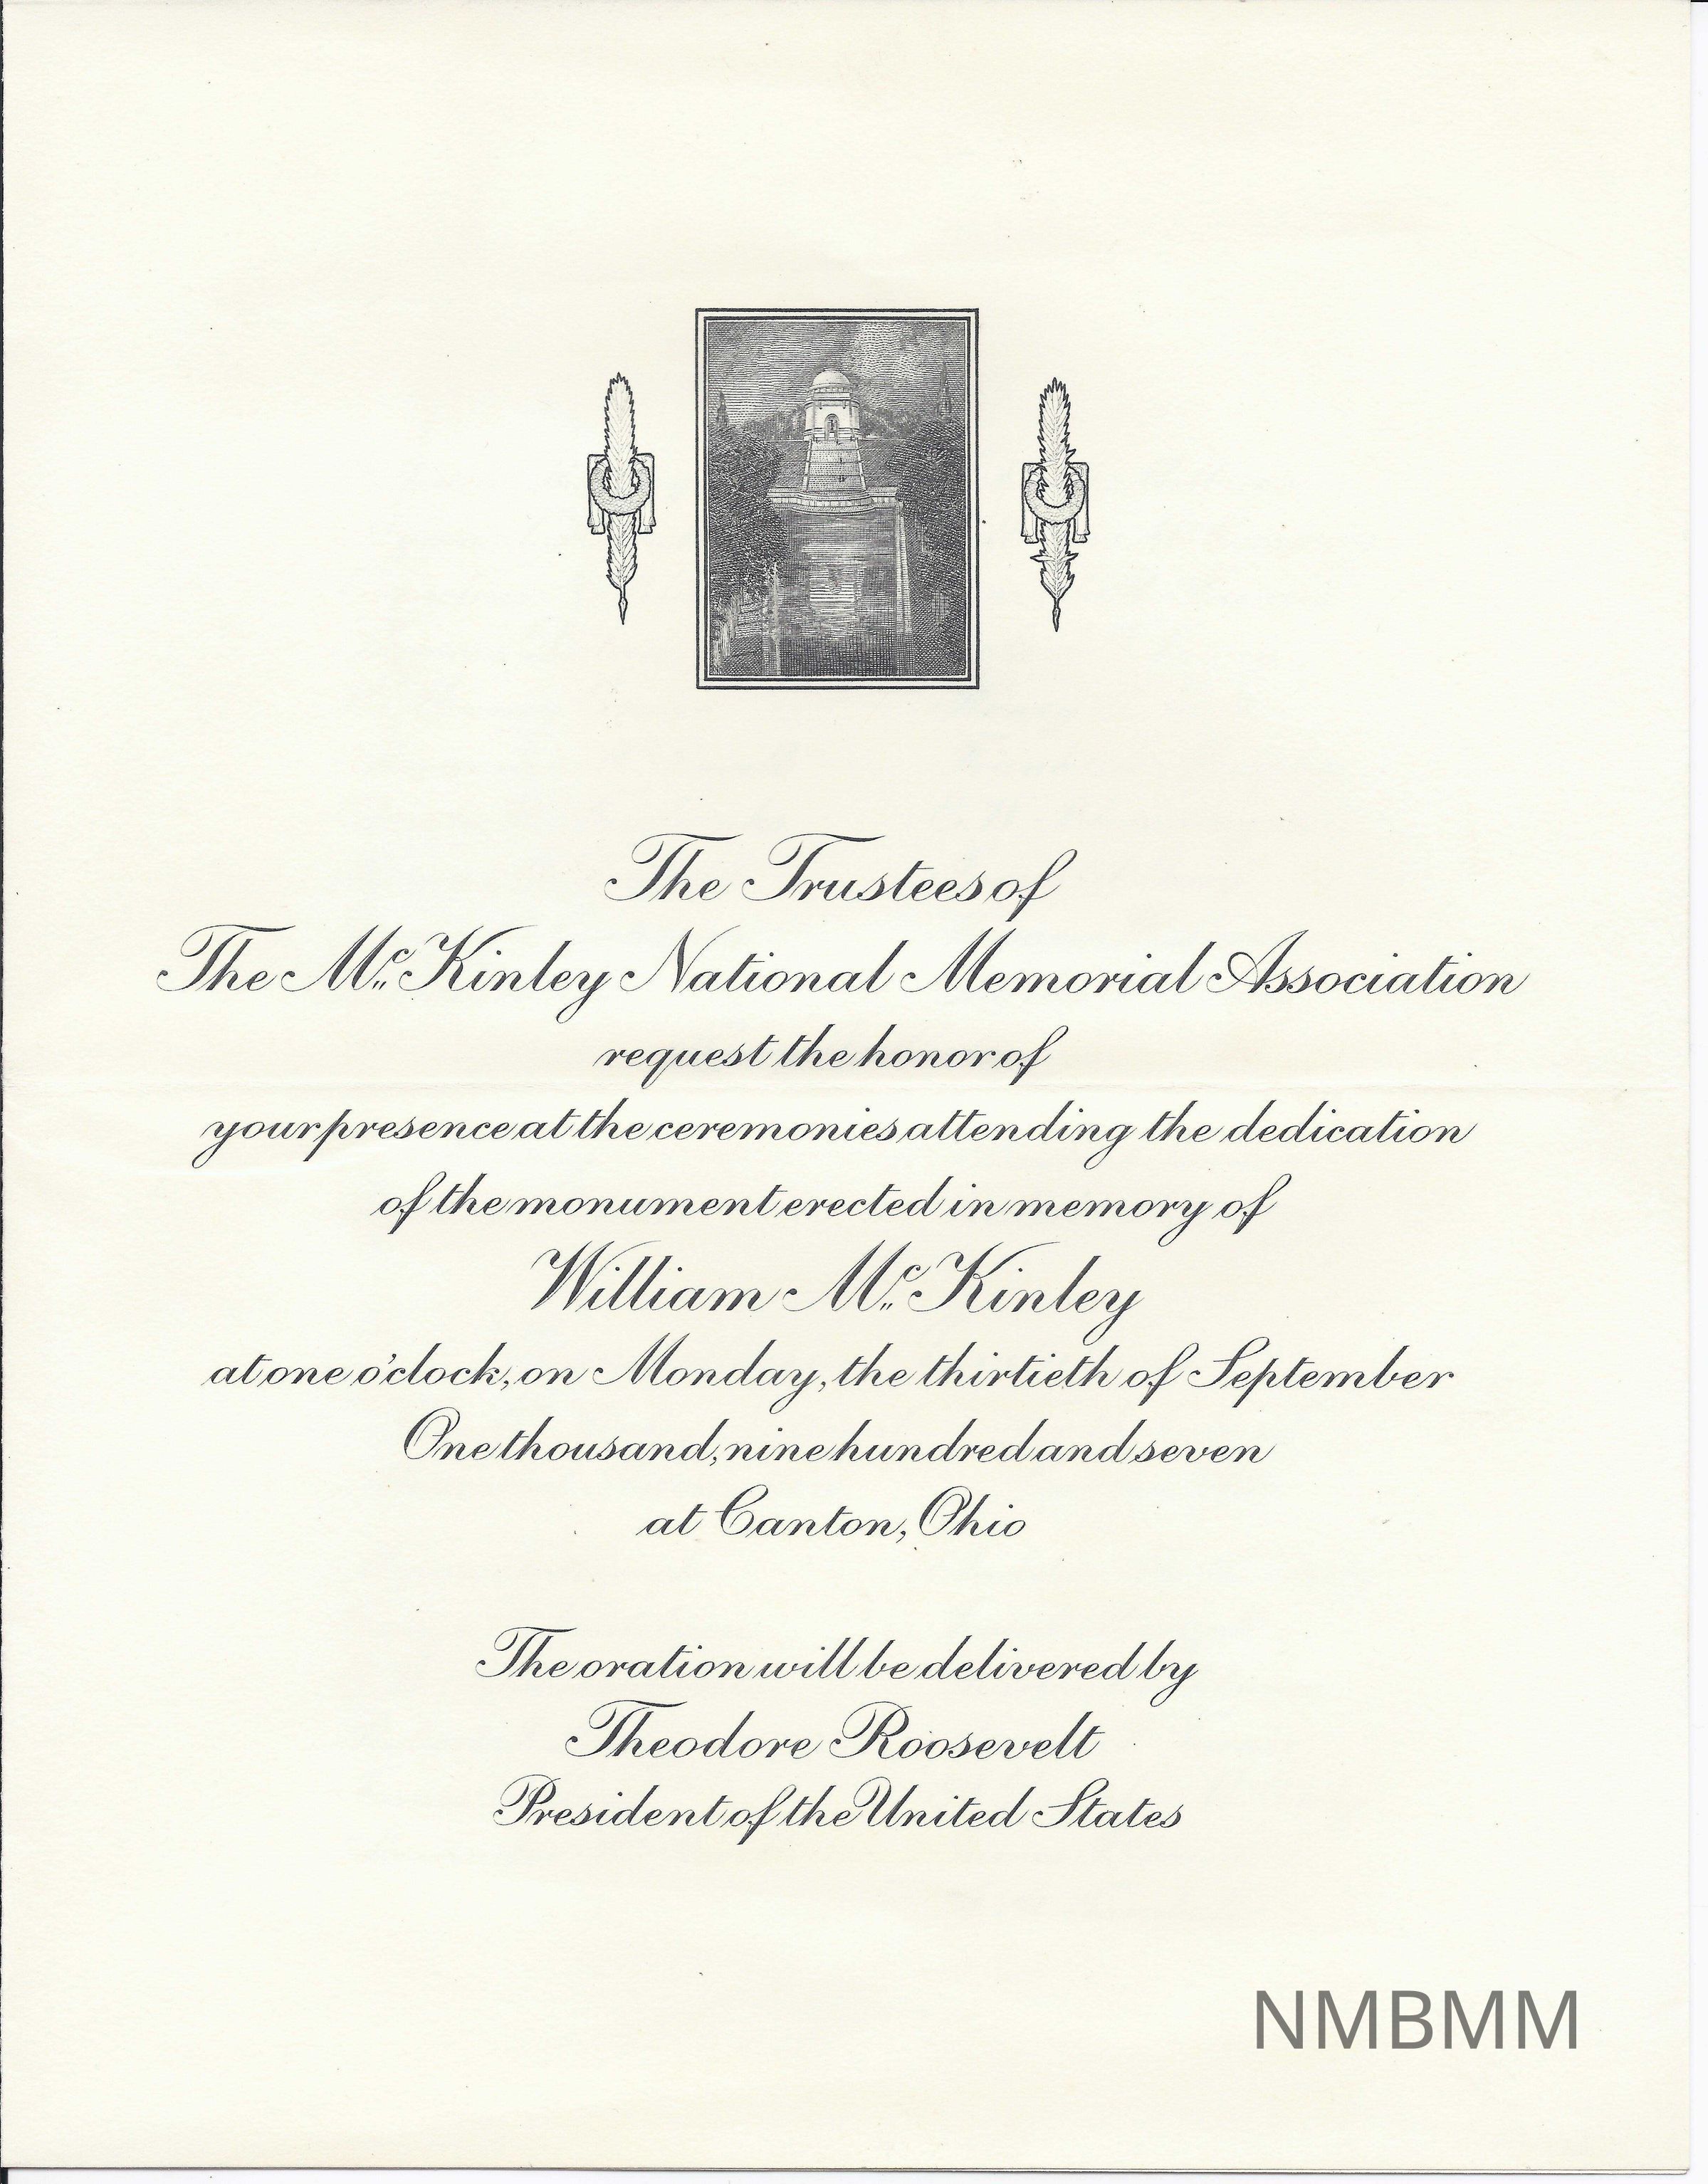 The Trustees of
The Mc. Kinley National Memorial Association
request the honor of
your presence at the ceremonies attending the dedication
of the monument erected in memory of
William Mc. Kinley
at one o'clock, on Monday, the thirtieth of September
One thousand, nine hundred and seven
at Canton, Ohio
The oration will be delivered by
Theodore Roosevelt
President of the United States
NMBMM